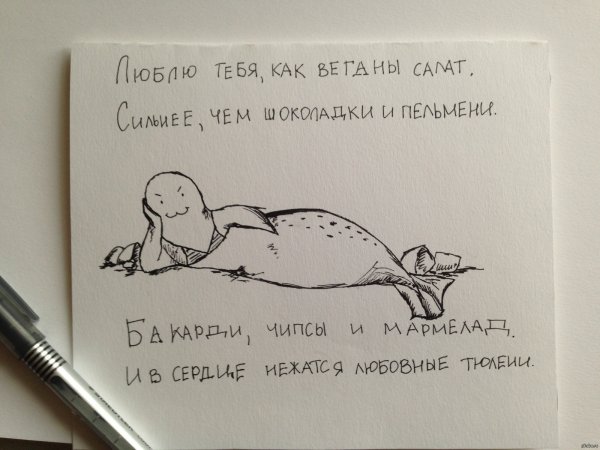 Люблю тебя, как веганы салат.
Сильнее, чем шоколадки и пельмени.
Бакарди, чипсы и мармелад.
И в сердце нежатся любовные тюлени.